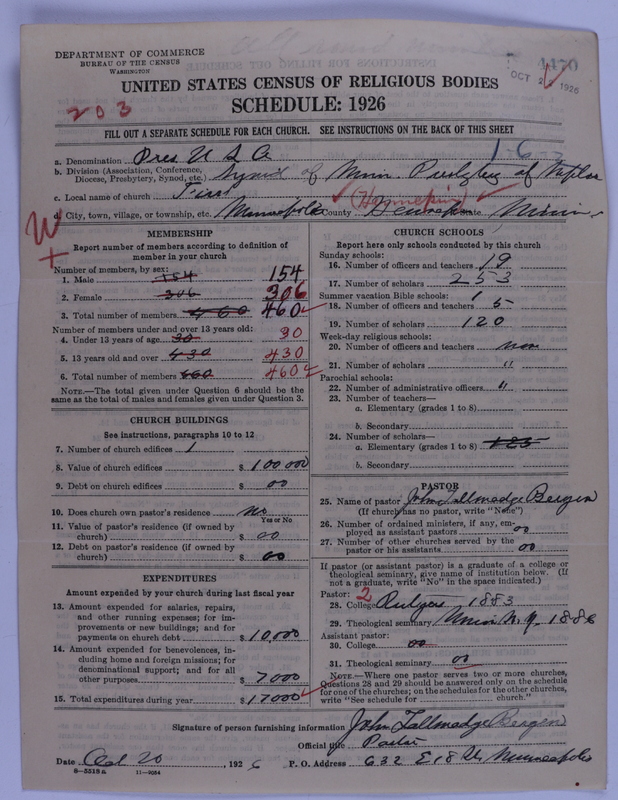 DEPARTMENT OF COMMERCE
BUREAU OF THE CENSUS
WASHINGTON
1170
OCT 2 1926
UNITED STATES CENSUS OF RELIGIOUS BODIES
SCHEDULE: 1926
203
FILL OUT A SEPARATE SCHEDULE FOR EACH CHURCH. SEE INSTRUCTIONS ON THE BACK OF THIS SHEET
1-6-3
a. Denomination Pres U S A
b. Division (Association, Conference, Diocese, Presbytery, Synod, etc.) Synod of Minn. Presbytery of
c. Local name of church First
(Hennepin)
d. City, town, village, or township, etc. Minneapolis County Hennepin State Minn.
MEMBERSHIP
Report number of members according to definition of
member in your church
Number of members, by sex:
1. Male 154 154
2. Female 306 306
3. Total number of members 460 460
Number of members under and over 13 years old:
4. Under 13 years of age 30 30
5. 13 years old and over 430 430
6. Total number of members 460 460
NOTE.—The total given under Question 6 should be
same as the total of males and females given under Question 3.
CHURCH BUILDINGS
See instructions, paragraphs 10 to 12
7. Number of church edifices 1
8. Value of church edifices $ 100 000
9. Debt on church edifices $ 00
10. Does church own pastor's residence No
Yes or No
11. Value of pastor's residence (if owned by
church) $ 00
12. Debt on pastor's residence (if owned by
church) $ 00
EXPENDITURES
Amount expended by your church during last fiscal year
13. Amount expended for salaries, repairs,
and other running expenses; for im-
provements or new buildings; and for
payments on church debt $ 10,000
14. Amount expended for benevolences, in-
cluding home and foreign missions; for
denominational support; and for all
other purposes $ 7000
15. Total expenditures during year $ 17000
CHURCH SCHOOLS
Report here only schools conducted by this church
Sunday schools:
16. Number of officers and teachers 19
17. Number of scholars 253
Summer vacation Bible schools: 1
18. Number of officers and teachers 5
19. Number of scholars 120
Week-day religious schools:
20. Number of officers and teachers non
21. Number of scholars "
Parochial schools:
22. Number of administrative officers "
23. Number of teachers—
a. Elementary (grades 1 to 8)
b. Secondary
24. Number of scholars—
a. Elementary (grades 1 to 8)
b. Secondary
PASTOR
25. Name of pastor John Tallmadge Bergen
(If church has no pastor, write "None")
26. Number of ordained ministers, if any, em-
ployed as assistant pastors 00
27. Number of other churches served by the
pastor or his assistants 00
If pastor (or assistant pastor) is a graduate of a college or
theological seminary, give name of institution below. (If
not a graduate, write "No" in the space indicated.)
Pastor: 2
28. College Rutgers 1883
29. Theological seminary Union N.Y. 1886
Assistant pastor:
30. College 00
31. Theological seminary 00
NOTE.—Where one pastor serves two or more churches,
Questions 28 and 29 should be answered only on the schedule
for one of the churches; on the schedules for the other churches,
write "See schedule for church."
Signature of person furnishing information John Tallmadge Bergen
Official title Pastor
Date Oct 20, 1926 P. O. Address 632 E 18 St, Minneapolis
8-5518a 11-9084